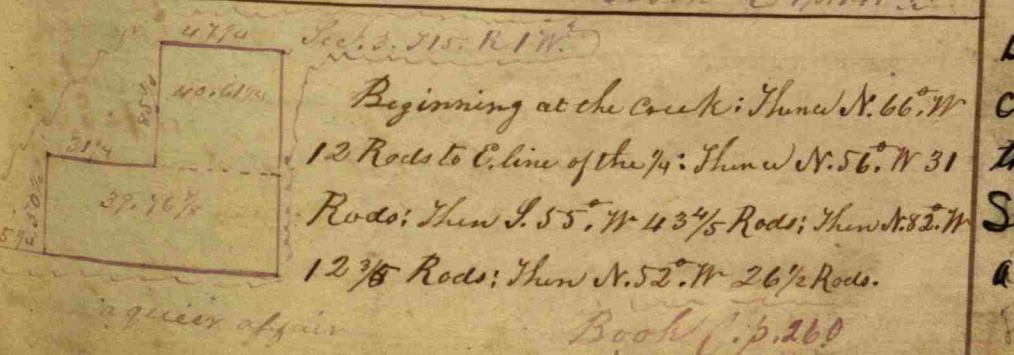 47¼
Sec. 3. T15. R 1 W.
40.61¼
Beginning at the Creek: Thence N. 66°. W
12 Rods to E. line of the ¼: Thence N. 56°. W 31
31¼
39.76⅞
Rods: Then S. 55°. W 43⅘ Rods; Then N. 82°. W
12⅗ Rods: Then N. 52°. W 26½ Rods.
a queer affair
Book C. p. 260